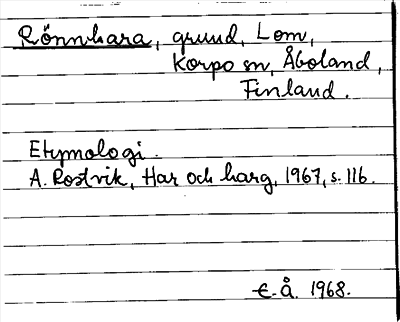 Rönnhara, grund, Lom,
Korpo sn, Åboland,
Finland.
Etymologi.
A. Rostvik, Har och harg, 1967, s. 116.
E. Å. 1968.